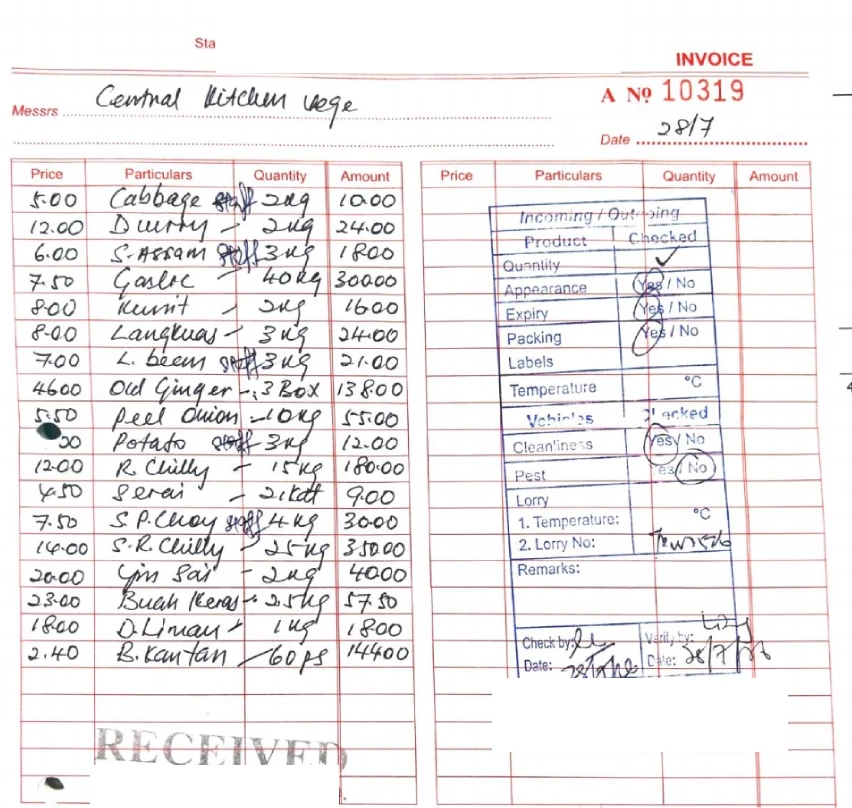 Sta
INVOICE
A Nº 10319
Messrs Central Kitchen vege
Date 28/7
Price Particulars Quantity Amount
5.00 Cabbage staff 2kg 10.00
12.00 D curry - 2kg 24.00
6.00 S. Assam staff 3kg 18.00
7.50 Garlic - 40kg 300.00
8.00 Kunit - 2kg 16.00
8.00 Langkuas - 3kg 24.00
7.00 L. been staff 3kg 21.00
46.00 Old Ginger - 3 Box 138.00
5.50 Peel Onion - 10kg 55.00
00 Potato staff 3kg 12.00
12.00 R. Chilly - 15kg 180.00
4.50 Serai - 2 ikat 9.00
7.50 S.P. Choy staff 4kg 30.00
14.00 S.R. Chilly - 25kg 350.00
20.00 Yin Sai - 2kg 40.00
23.00 Buah Keras - 2.5kg 57.50
18.00 D. Limau - 1kg 18.00
2.40 B. Kantan - 60ps 144.00
RECEIVED
Price Particulars Quantity Amount
Incoming / Outgoing
Product Checked
Quantity ✓
Appearance Yes / No
Expiry Yes / No
Packing Yes / No
Labels
Temperature °C
Vehicles Checked
Cleanliness Yes / No
Pest Yes / No
Lorry
1. Temperature: °C
2. Lorry No:
Remarks:
Check by: Verify by:
Date: Date: 28/7